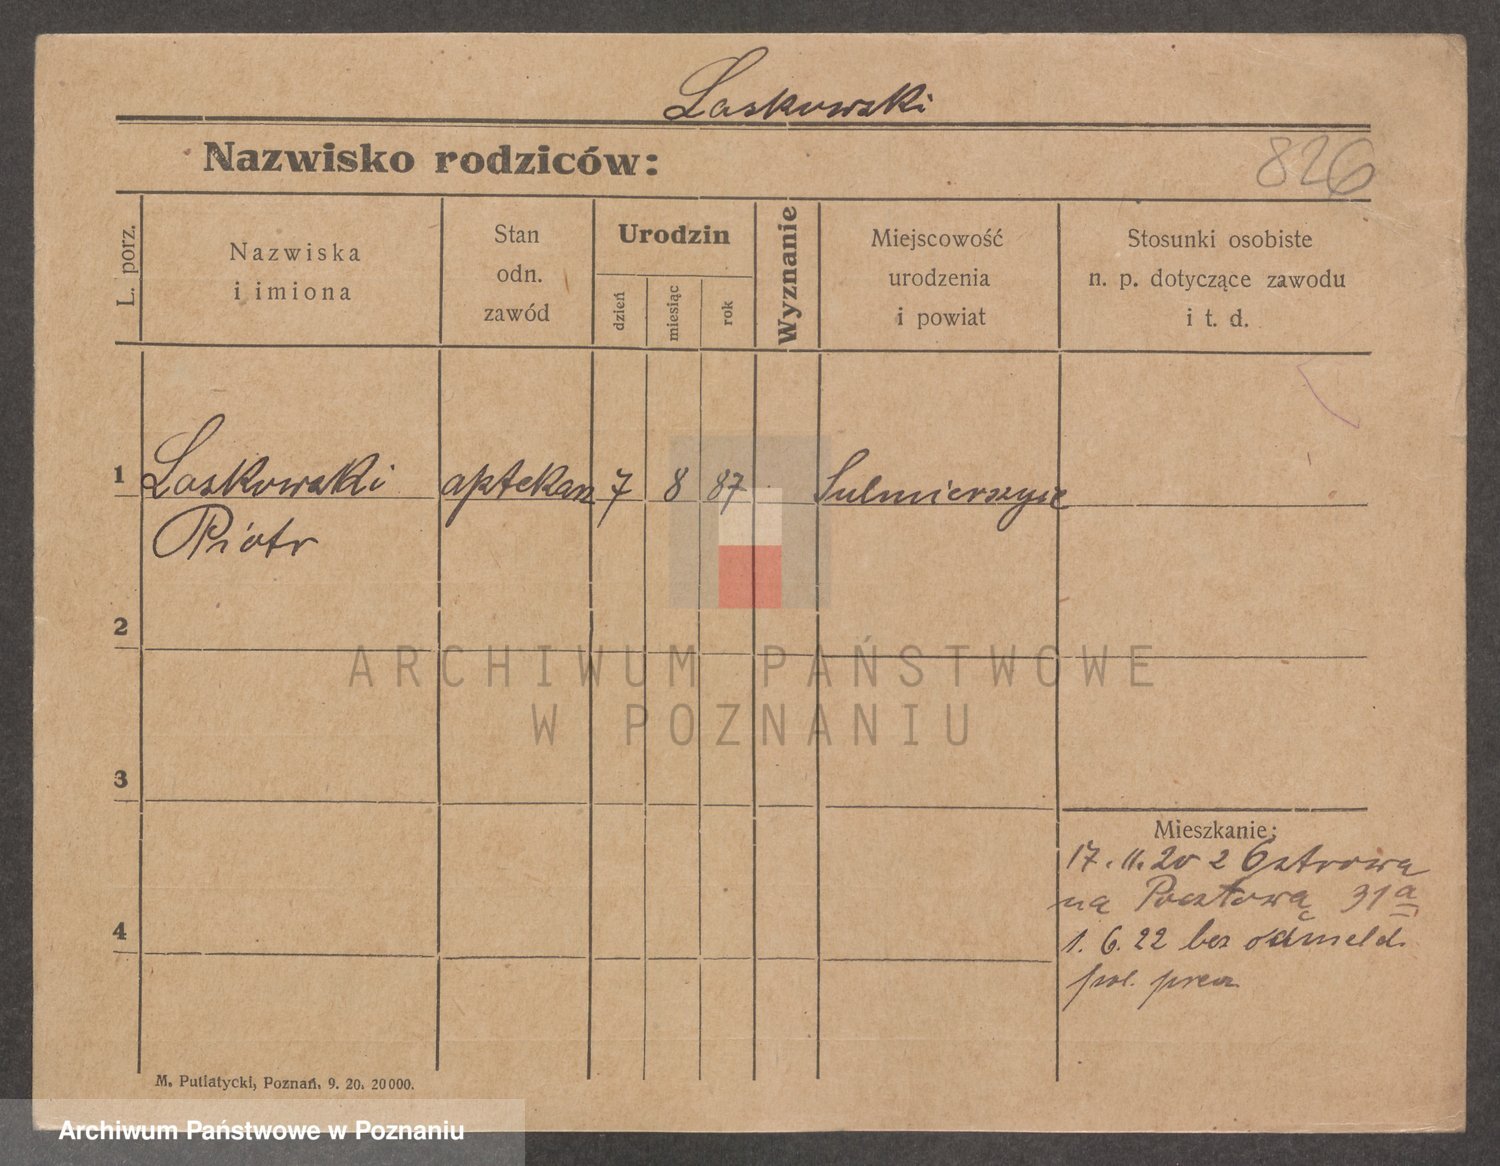 Laskowski
Nazwisko rodziców:
826
L. porz.
Nazwiska
i imiona
Stan
odn.
zawód
Urodzin
dzień
miesiąc
rok
Wyznanie
Miejscowość
urodzenia
i powiat
Stosunki osobiste
n. p. dotyczące zawodu
i t. d.
1 Laskowski aptekarz 7 8 87 Sulmierzyce
Piotr
2
3
4
Mieszkanie:
17. 11. 20 z Ostrowa
na Pocztową 31a
1. 6. 22 bez odmeld.
pol. precz
M. Putiatycki, Poznań, 9. 20. 20000.
ARCHIWUM PAŃSTWOWE
W POZNANIU
Archiwum Państwowe w Poznaniu